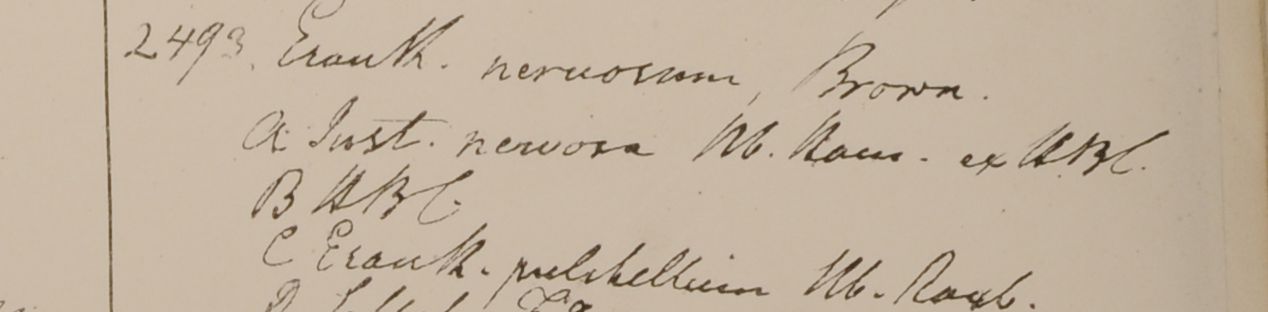 2493. Eranth. nervosum, Brown.
A Just. nervosa Hb. Ham. ex HBC.
B HBC.
C Eranth. pulchellum Hb. Roxb.